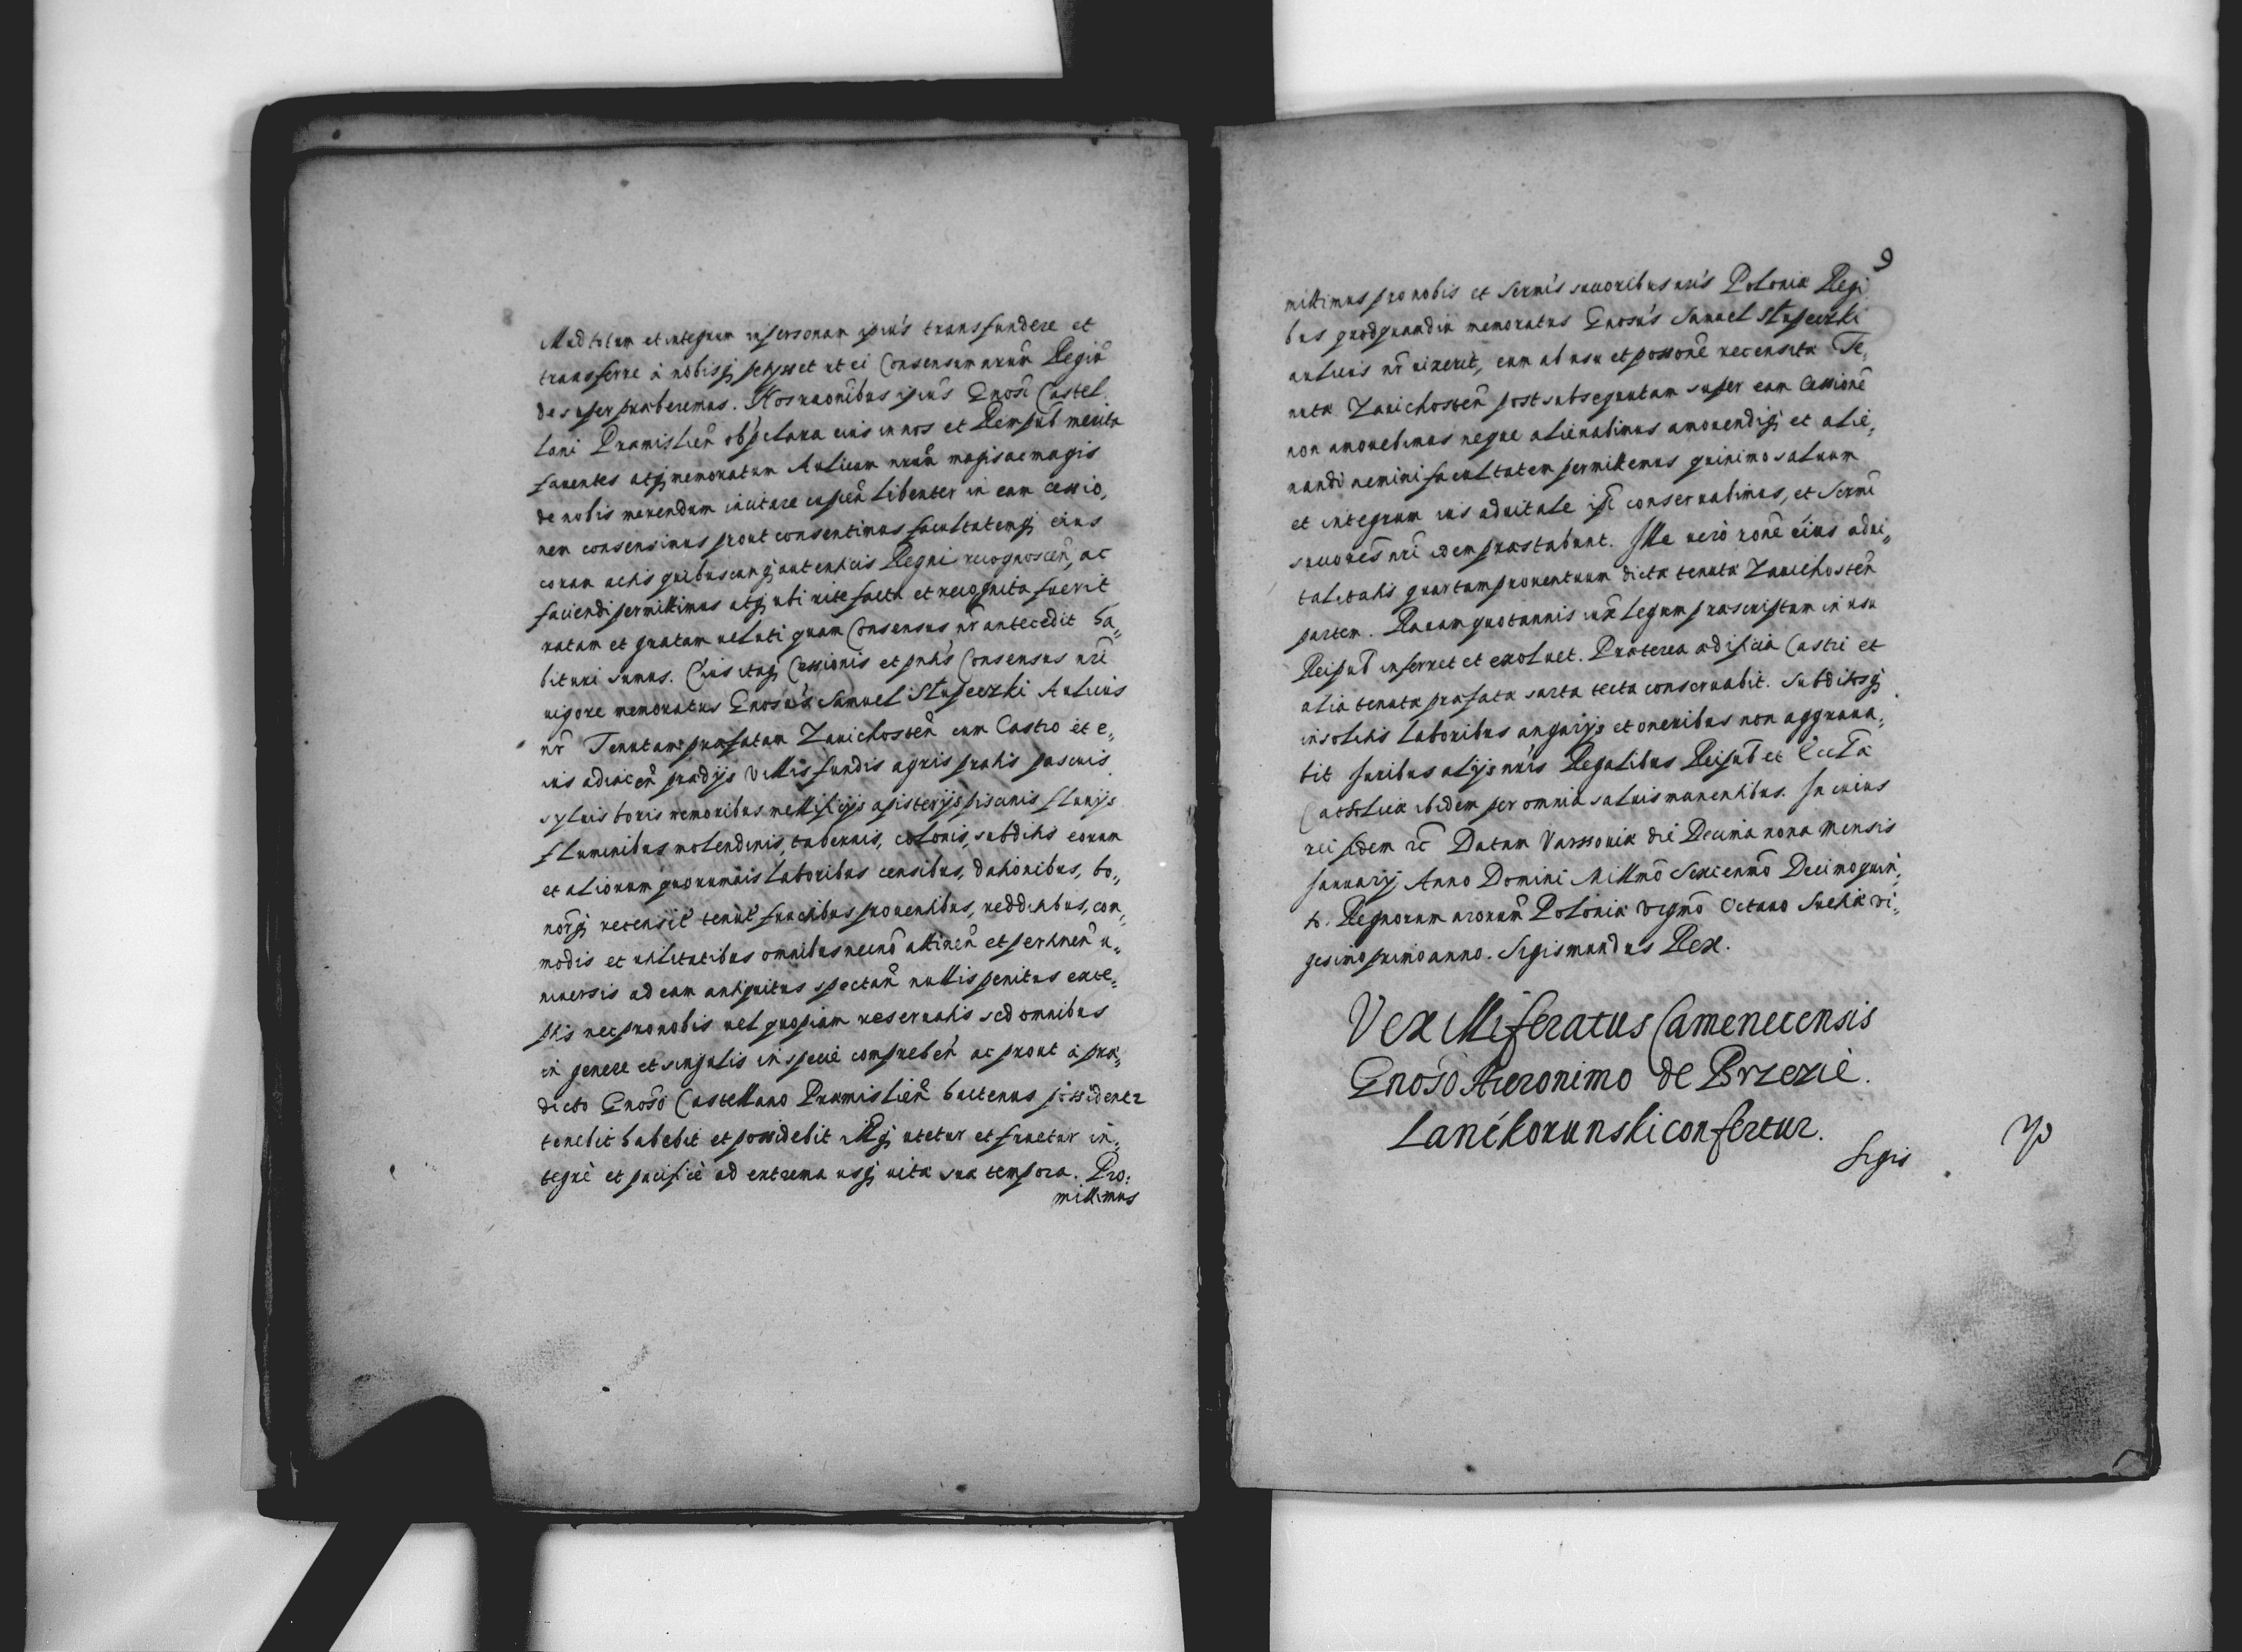 Illud totum et integrum in personam ipius transfundere et
transferre à nobisq petysset ut ei Consensum nrum Regiũ
desuper præberemus. Nos raonibus ipius Gnosi Castel
lani Præmislien̄ ob præclara eius in nos et Rempub merita
fauentes atq memoratum Aulicum nrum magis ac magis
de nobis merendum incitare cupien̄ libenter in eam cessio,
nem consensimus prout consentimus facultatemq eius
coram actis quibuscunq autenticis Regni recognoscen̄, ac
faciendi permittimus atq ubi rite facta et recognita fuerit
ratam et gratam ueluti quam Consensus nr̄ antecedit ha„
bituri sumus. Cuius itaq Cessionis et pntis Consensus nri
uigore memoratus Gnosus Samuel Słupeczki Aulicus
nr̄ Tenutam præfatam Zauichosten̄ cum Castro et e„
ius adiacen̄ prædijs Villis fundis agris pratis pascuis
syluis boris nemoribus mellificijs apisterijs piscinis fluuijs
fluminibus molendinis, tabernis, colonis, subditis eorum
et aliorum quorumuis laboribus censibus, dationibus, bo„
norq recensit tenut fructibus prouentibus, redditibus, com„
modis et utilitatibus omnibus necno attinen̄ et pertinen̄ u„
niuersis ad eam antiquitus spectan̄ nullis penitus exce„
ptis nec pro nobis uel quopiam reseruatis sed omnibus
in genere et singulis in specie comprehen̄ ac prout à præ„
dicto Gnoso Castellano Præmislien̄ hactenus possidentr
tenebit habebit et possidebit illisq utetur et fruetur in„
tegrè et pacificè ad extrema usq uitæ suæ tempora. Pro:
mittimus
9
mittimus pro nobis et Sermis succoribus nris Poloniæ Regi
bus quod quamdiu memoratus Gnosus Samuel Słupeczki
aulicus nr̄ uixerit, eum ab usu et possone recensitæ Te„
nutæ Zauichosten̄ post subsequutam super eam Cessionē
non amouebimus neque alienabimus amouendiq et alie„
nandi nemini facultatem permittemus quinimo saluum
et integrum ius aduitale ipi conseruabimus, et Sermi
succores nri idem præstabunt. Ille uerò rone eius adui„
talitatis quartam prouentuum dictæ tenutæ Zauichosten̄
partem. Rauam quotannis iux legum præscriptum in usu
Reipub inferret et exoluet. Præterea ædificia Castri et
alia tenutæ præfatæ sarta tecta conseruabit. subditosq
insolitis laboribus angarijs et oneribus non aggraua„
bit Iuribus alijs nris Regalibus Reipub et Eccl̄æ
Catholicæ ibidem per omnia saluis manentibus. In cuius
rei fidem rc̄ Datum Varssouiæ die Decima nona Mensis
Januarij Anno Domini Millmō Sexcenmō Decimoquin„
to. Regnorum nrorum Poloniæ Vigmō Octauo Sueciæ vi„
gesimoprimo anno. Sigismundus Rex.
Vexilliferatus Camenecensis
Gnoso Hieronimo de Brzezie
Lanckorunski confertur.
Sigis